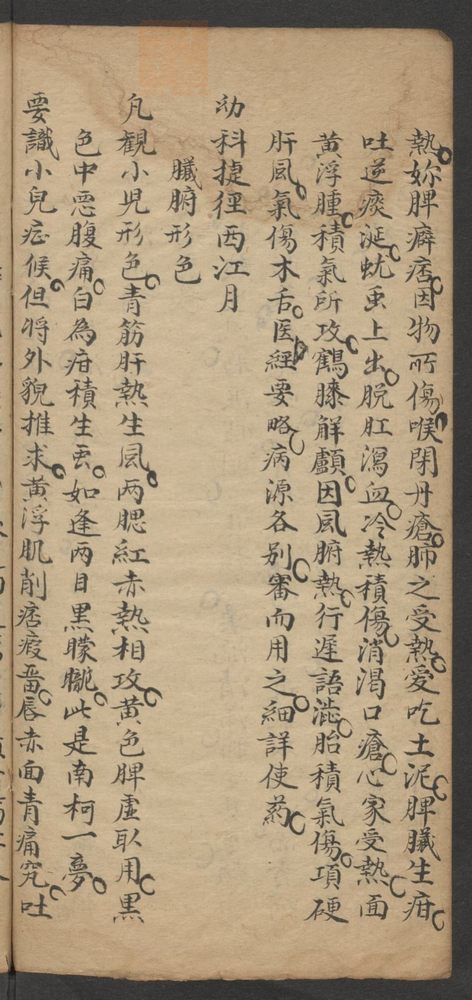 熱妳脾癖痞因物所傷喉閉丹瘡肺之受熱愛吃土泥脾臟生疳
吐逆痰涎蚘虫上出脱肛瀉血冷熱積傷消渴口瘡心家受熱面
黄浮腫積氣所攻鶴膝解顱因風腑熱行遲語澁胎積氣傷項硬
肝風氣傷木舌医經要略病源各别審而用之細詳使药
幼科捷徑西江月
臟腑形色
凡觀小児形色青筋肝熱生風两腮紅赤熱相攻黄色脾虚取用黒
色中悪腹痛白為疳積生虫如逢两目黒朦朧此是南柯一夢
要識小兒症候但将外貌推求黄浮肌削痞瘕畨唇赤面青痛究吐